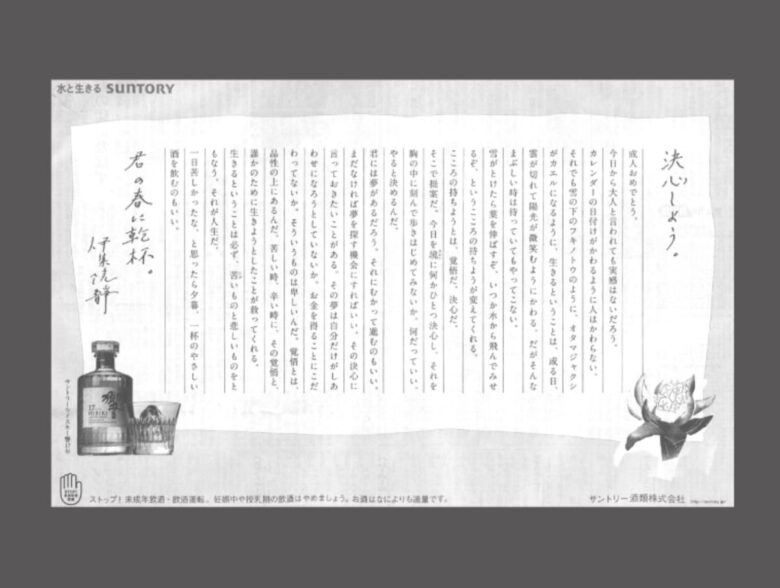 水と生きる SUNTORY
決心しよう。
成人おめでとう。
今日から大人と言われても実感はないだろう。
カレンダーの日付けがかわるように人はかわらない。
それでも雪の下のフキノトウのように、オタマジャクシ
がカエルになるように、生きるということは、或る日、
雲が切れて陽光が微笑むようにかわる。だがそんな
まぶしい時は待っていてもやってこない。
雪がとけたら葉を伸ばすぞ、いつか水から飛んでみせ
るぞ、というこころの持ちようが変えてくれる。
こころの持ちようとは、覚悟だ。決心だ。
そこで提案だ。今日を境に何かひとつ決心し、それを
胸の中に刻んで歩きはじめてみないか。何だっていい。
やると決めるんだ。
君には夢があるだろう。それにむかって進むのもいい。
まだなければ夢を探す機会にすればいい。その決心に
言っておきたいことがある。その夢は自分だけがしあ
わせになろうとしていないか。お金を得ることにこだ
わってないか。そういうものは卑しいんだ。覚悟とは、
品性の上にあるんだ。苦しい時、辛い時に、その覚悟と、
誰かのために生きようとしたことが救ってくれる。
生きるということは必ず、苦いものと悲しいものをと
もなう。それが人生だ。
一日苦しかったな、と思ったら夕暮、一杯のやさしい
酒を飲むのもいい。
君の春に乾杯。
伊集院静
サントリーウイスキー響17年
響
17
HIBIKI
ストップ！未成年飲酒・飲酒運転。妊娠中や授乳期の飲酒はやめましょう。お酒はなによりも適量です。
サントリー酒類株式会社